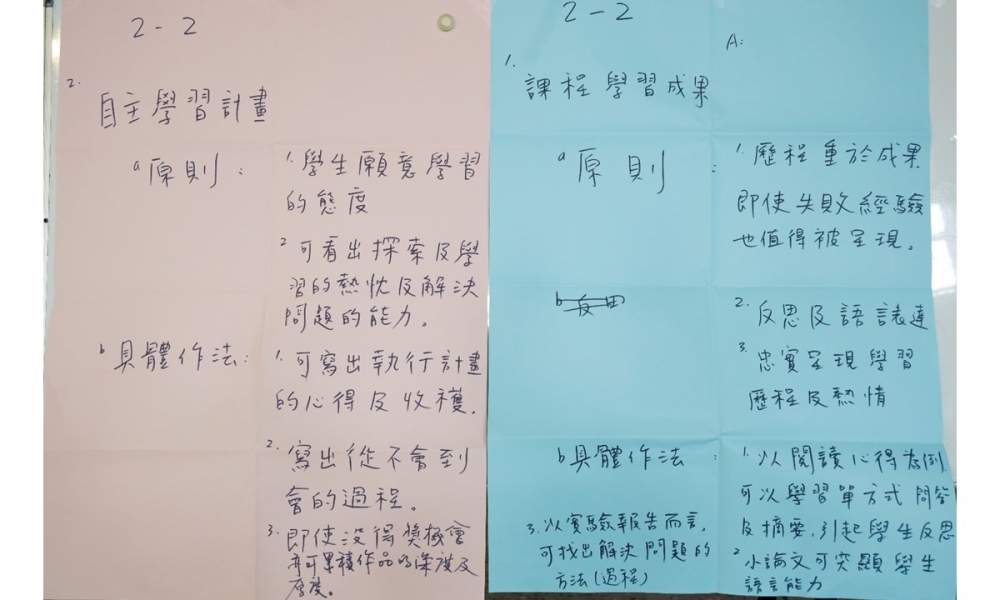 2-2
2.
自主學習計畫
a 原則：
1. 學生願意學習
的態度
2. 可看出探索及學
習的熱忱及解決
問題的能力。
b 具體作法：
1. 可寫出執行計畫
的心得及收穫.
2. 寫出從不會到
會的過程。
3. 即使沒得獎機會
亦可累積作品的深度及
厚度。
2-2
A:
1.
課程學習成果
a 原則：
1. 歷程重於成果
即使失敗經驗
也值得被呈現。
2. 反思及語言表達
3. 忠實呈現學習
歷程及熱情
b 具體作法：
1. 以閱讀心得為例
可以學習單方式問答
及摘要，引起學生反思
2. 小論文可突顯學生
語言能力
3. 以實驗報告而言，
可找出解決問題的
方法(過程)